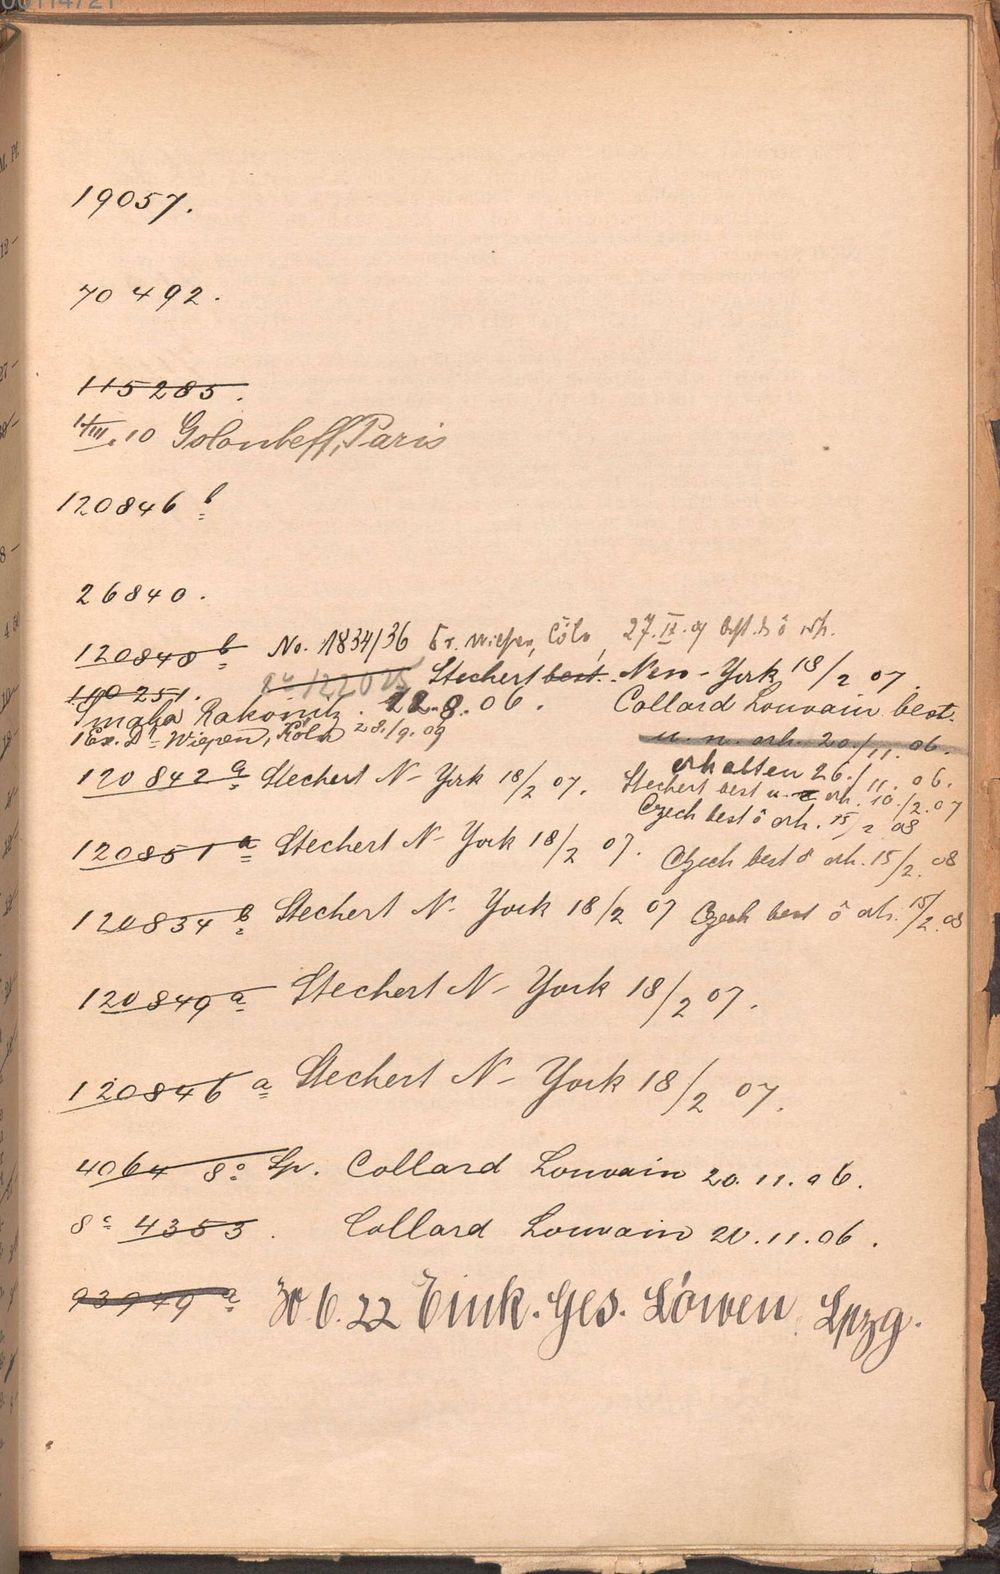 00114721
19057.
70 492.
115285.
1/III. 10 Goloubeff, Paris
120846 b
26840.
120848 b No. 1834/36 Dr. Wiepen, Cöln, 27. IX. 09 best. ô erh.
Stechert best. New-York 18/2 07.
110 251.
Rakonitz. 22.8.06. Collard Louvain best.
1 Ex. Dr. Wiepen, Köln 28./9. 09 u. n. erh. 20/11. 06.
erhalten 26./11. 06.
120 842 a Stechert N-York 18/2 07. Stechert best u. erh. 10./2. 07
Czech best ô erh. 15/2 08
120851 a Stechert N-York 18/2 07. Czech best ô erh. 15/2. 08
120834 b Stechert N-York 18/2 07 Czech best ô erh. 15/2. 08
120849 a Stechert N-York 18/2 07.
120846 a Stechert N-York 18/2 07.
4064 8° Sp. Collard Louvain 20. 11. 06.
8° 4353. Collard Louvain 20. 11. 06.
93949 a 30 6. 22 Eink. Ges. Löwen, Lpzg.